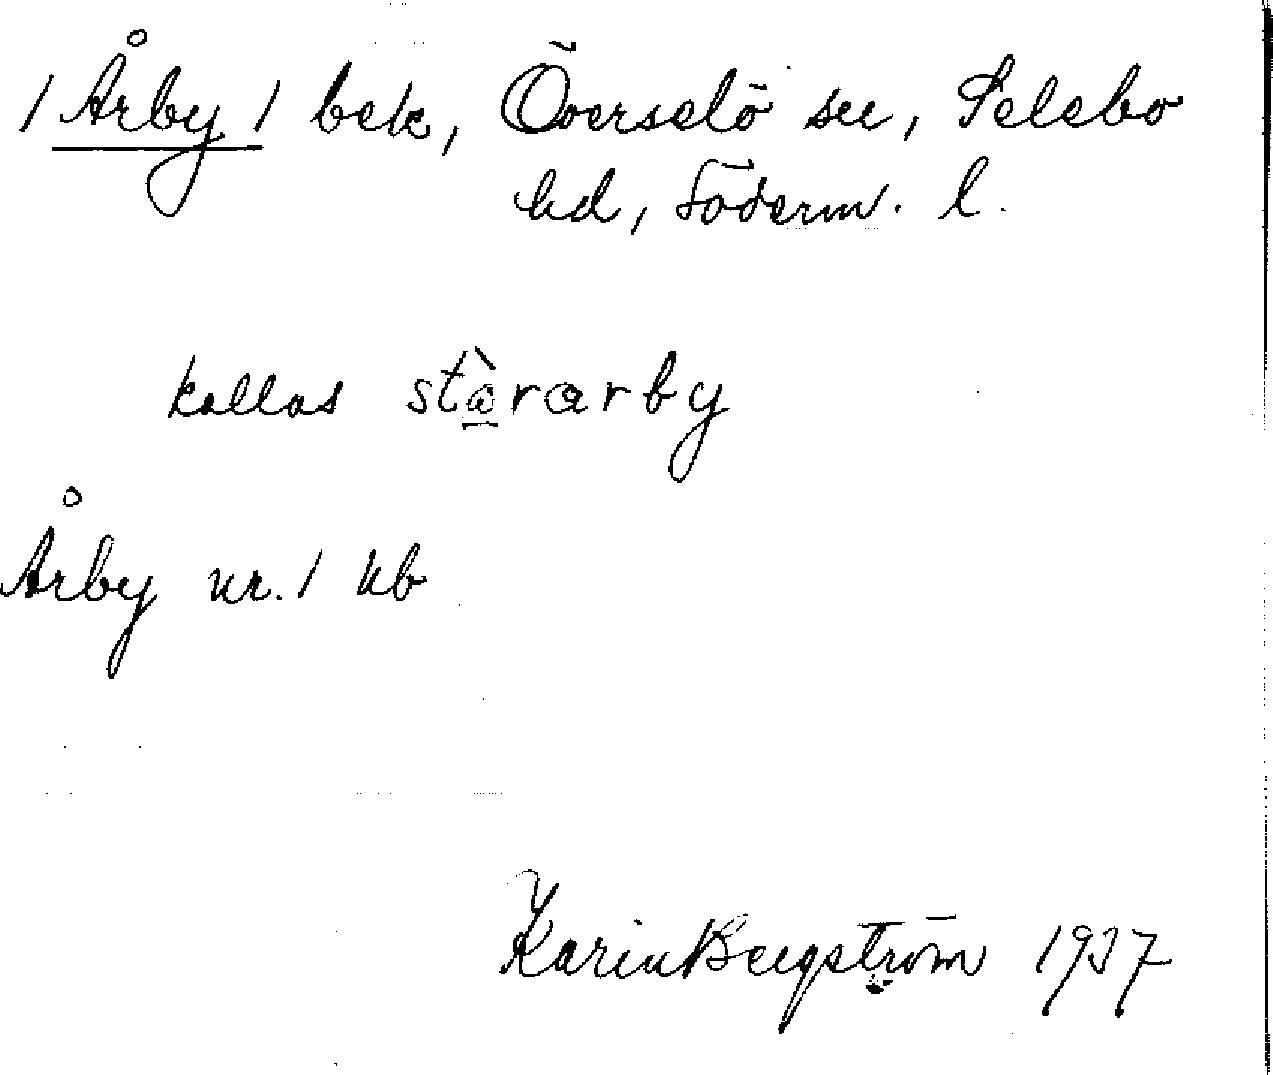 / Årby / bek, Överselö sn, Selebo
hd, Söderm. l.
kallas stå̱̀rarby
Årby nr. 1 kb
Karin Bergström 1937